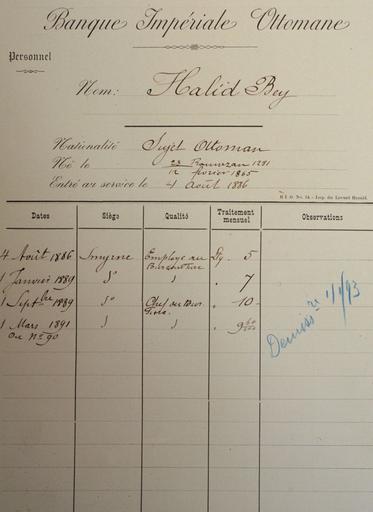 Banque Impériale Ottomane
Personnel
Nom: Halid Bey
Nationalité Sujet Ottoman
Né le 1281
12 février 1865
Entré au service le 4 Août 1886
B I O No. 14 - Imp. du Levant Herald.
Dates Siège Qualité Traitement mensuel Observations
4 Août 1886 Smyrne Employé au Lq. 5
1 Janvier 1889 do " " 7
1 Septbre 1889 do Chef du " 10 -
1 Mars 1891 " " " 9
Ou No 90
Demiss. 1/1/93